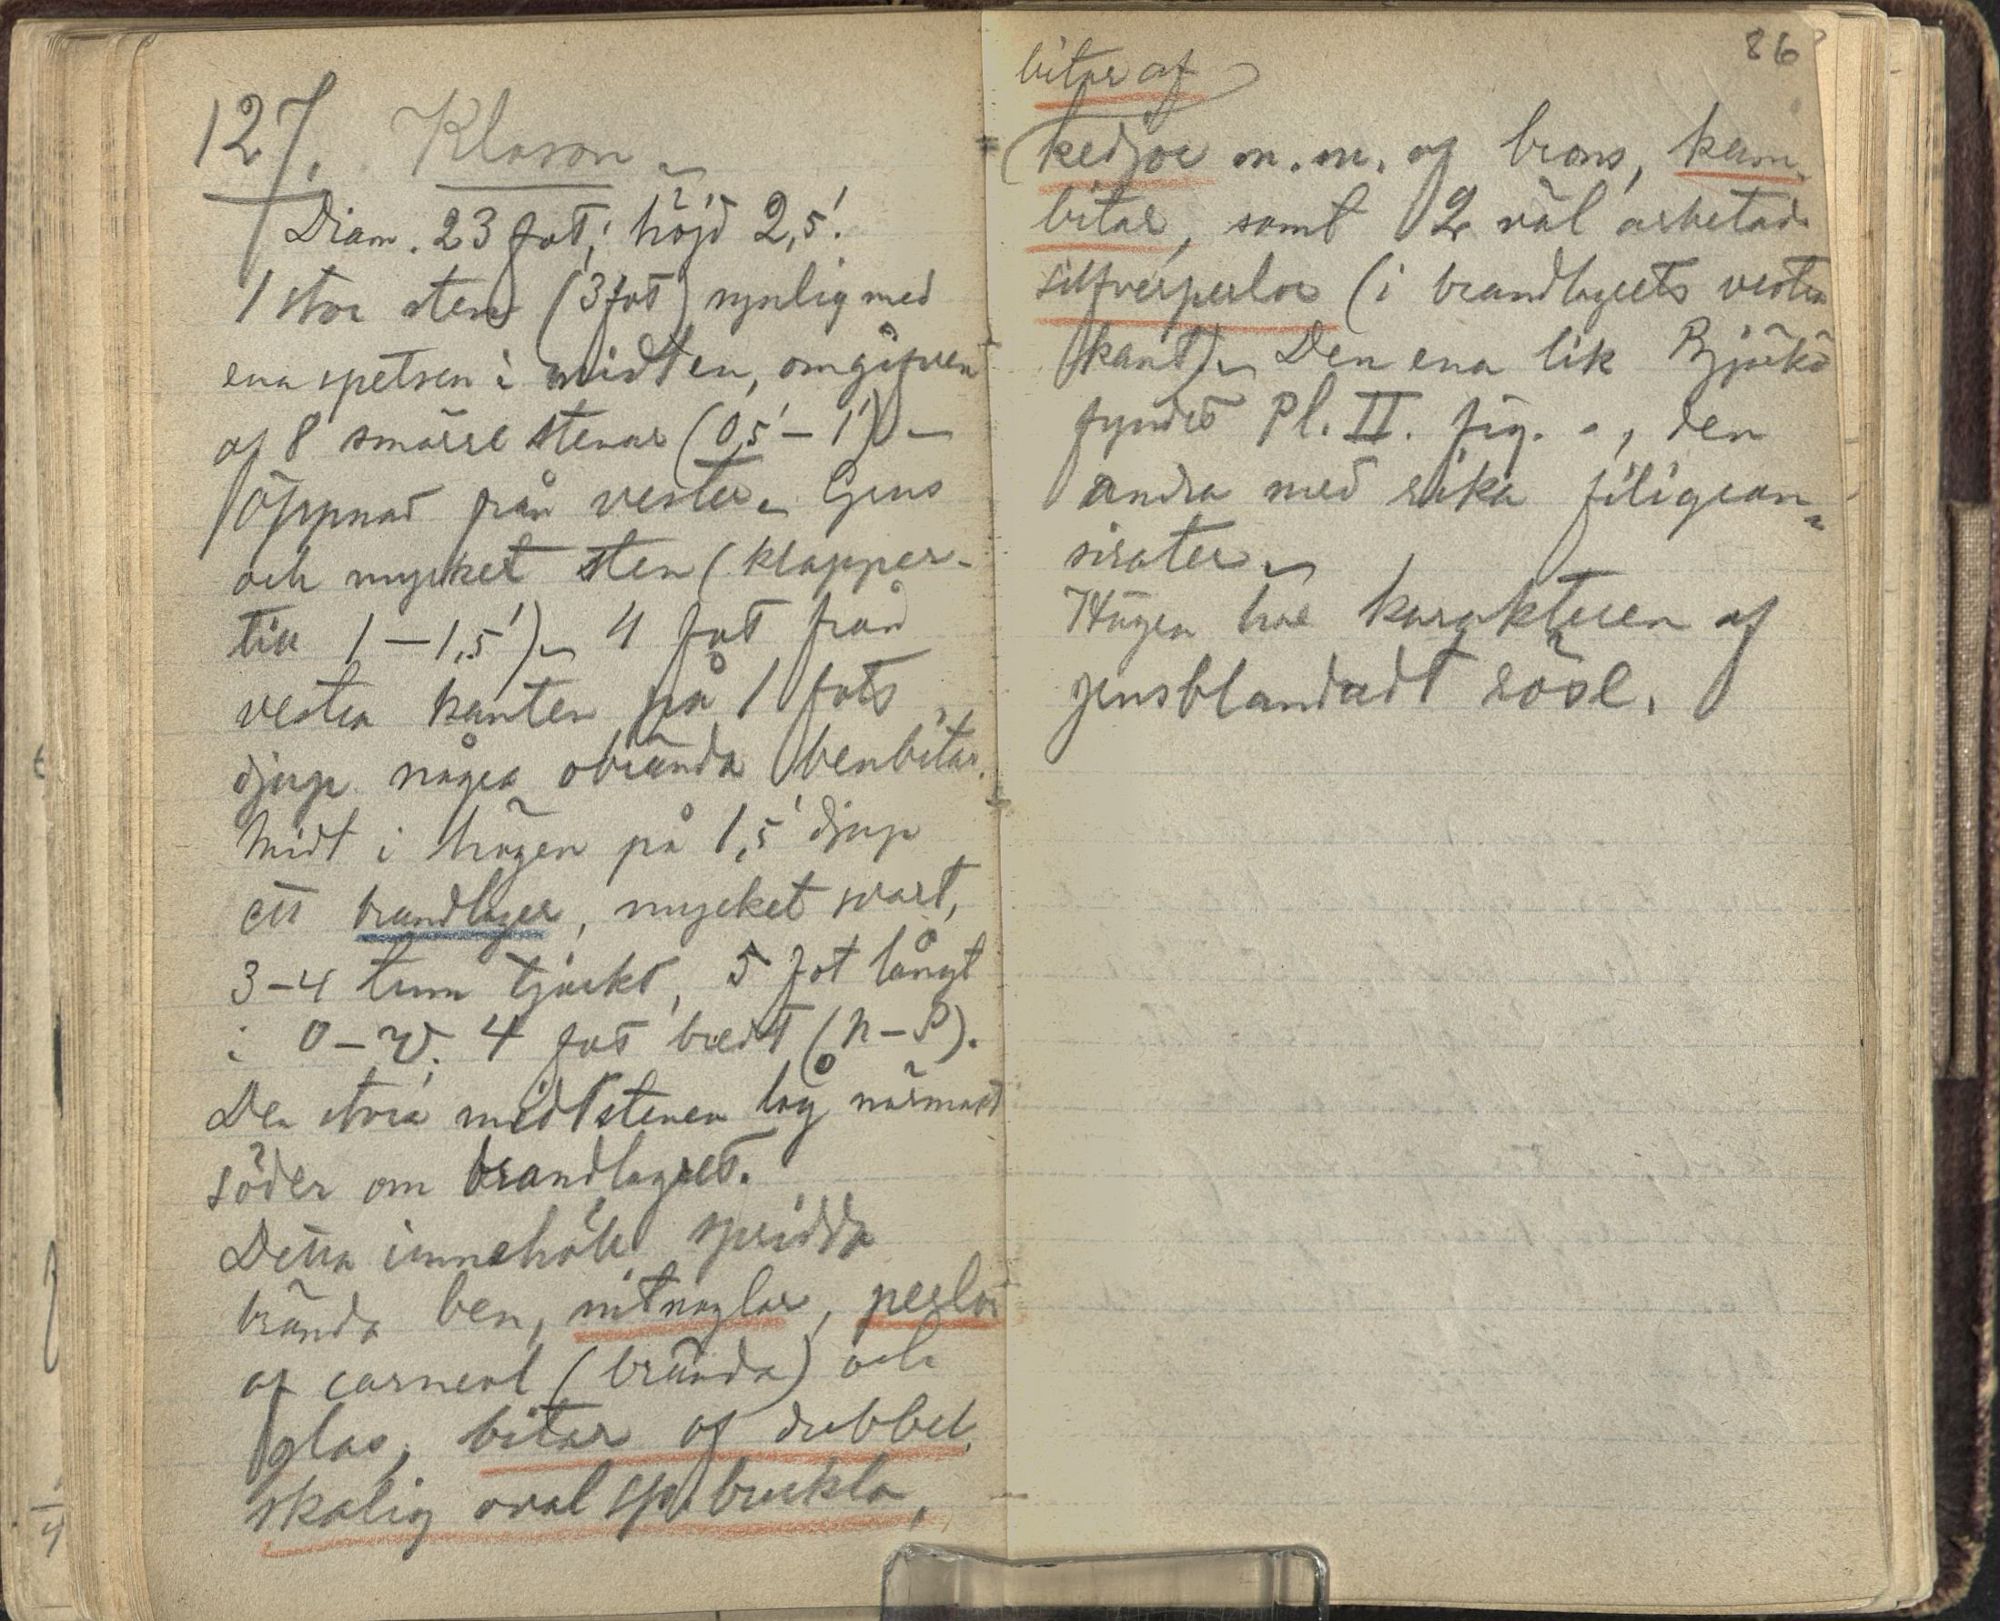 127. Klason –
Diam. 23 fot; höjd 2,5'.
1 stor sten (3 fot) synlig med
ena spetsen i midten, omgifven
af 8 smärre stenar (0,5' – 1') –
Öppnad från vester – Grus
och mycket sten (klapper-
till 1 – 1,5') – 4 fot från
vestra kanten på 1 fots
djup några obrända benbitar.
Midt i högen på 1,5' djup
ett brandlager, mycket svart,
3–4 tum tjockt, 5 fot långt
i O – V. 4 fot bredt (N – S).
Den stora midtstenen låg närmast
söder om brandlagret.
Detta innehöll spridda
brända ben, nitnaglar, perlor
af carneol (brända) och
glas, bitar af dubbel-
skalig oval sp.buckla,
86
bitar af
kedjor m.m. af brons, kam-
bitar, samt 2 väl arbetade
silfverperlor (i brandlagrets vestra
kant) – Den ena lik Björkö
fyndet Pl. II. fig. - , den
andra med rika filigran-
sirater –
Högen har karakteren af
grusblandadt röse.